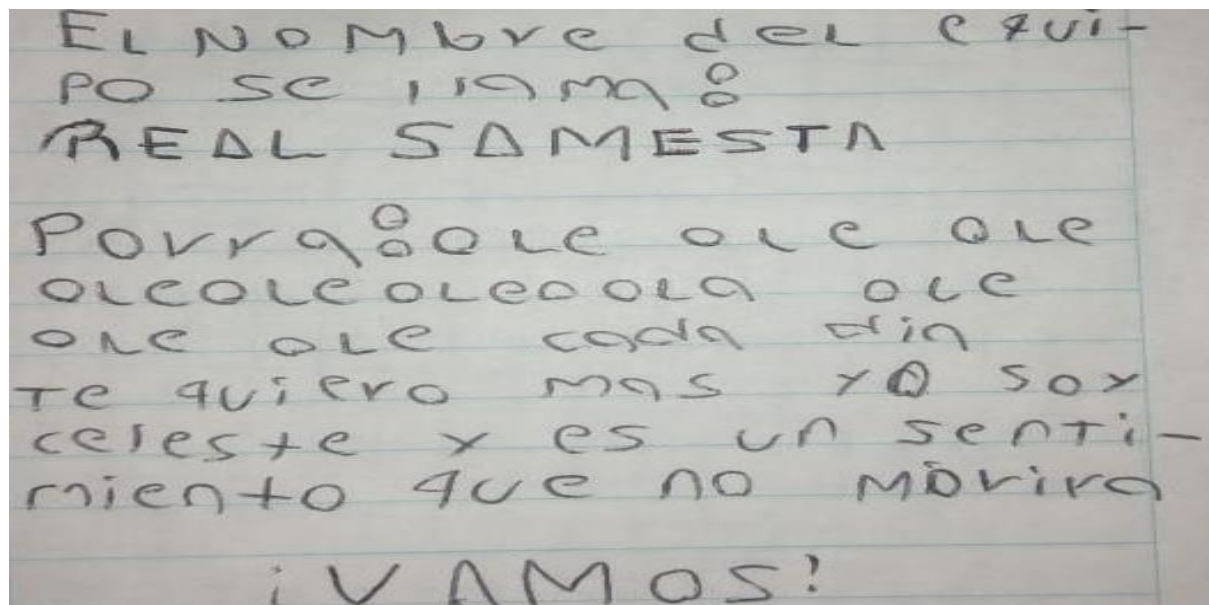 EL NOMbre del equi-
PO se llama:
REAL SAMESTA
Porra: ole ole ole
oleoleoleoola ole
ole ole cada dia
Te quiero mas yo soy
celeste y es un senti-
miento que no morira
¡VAMOS!